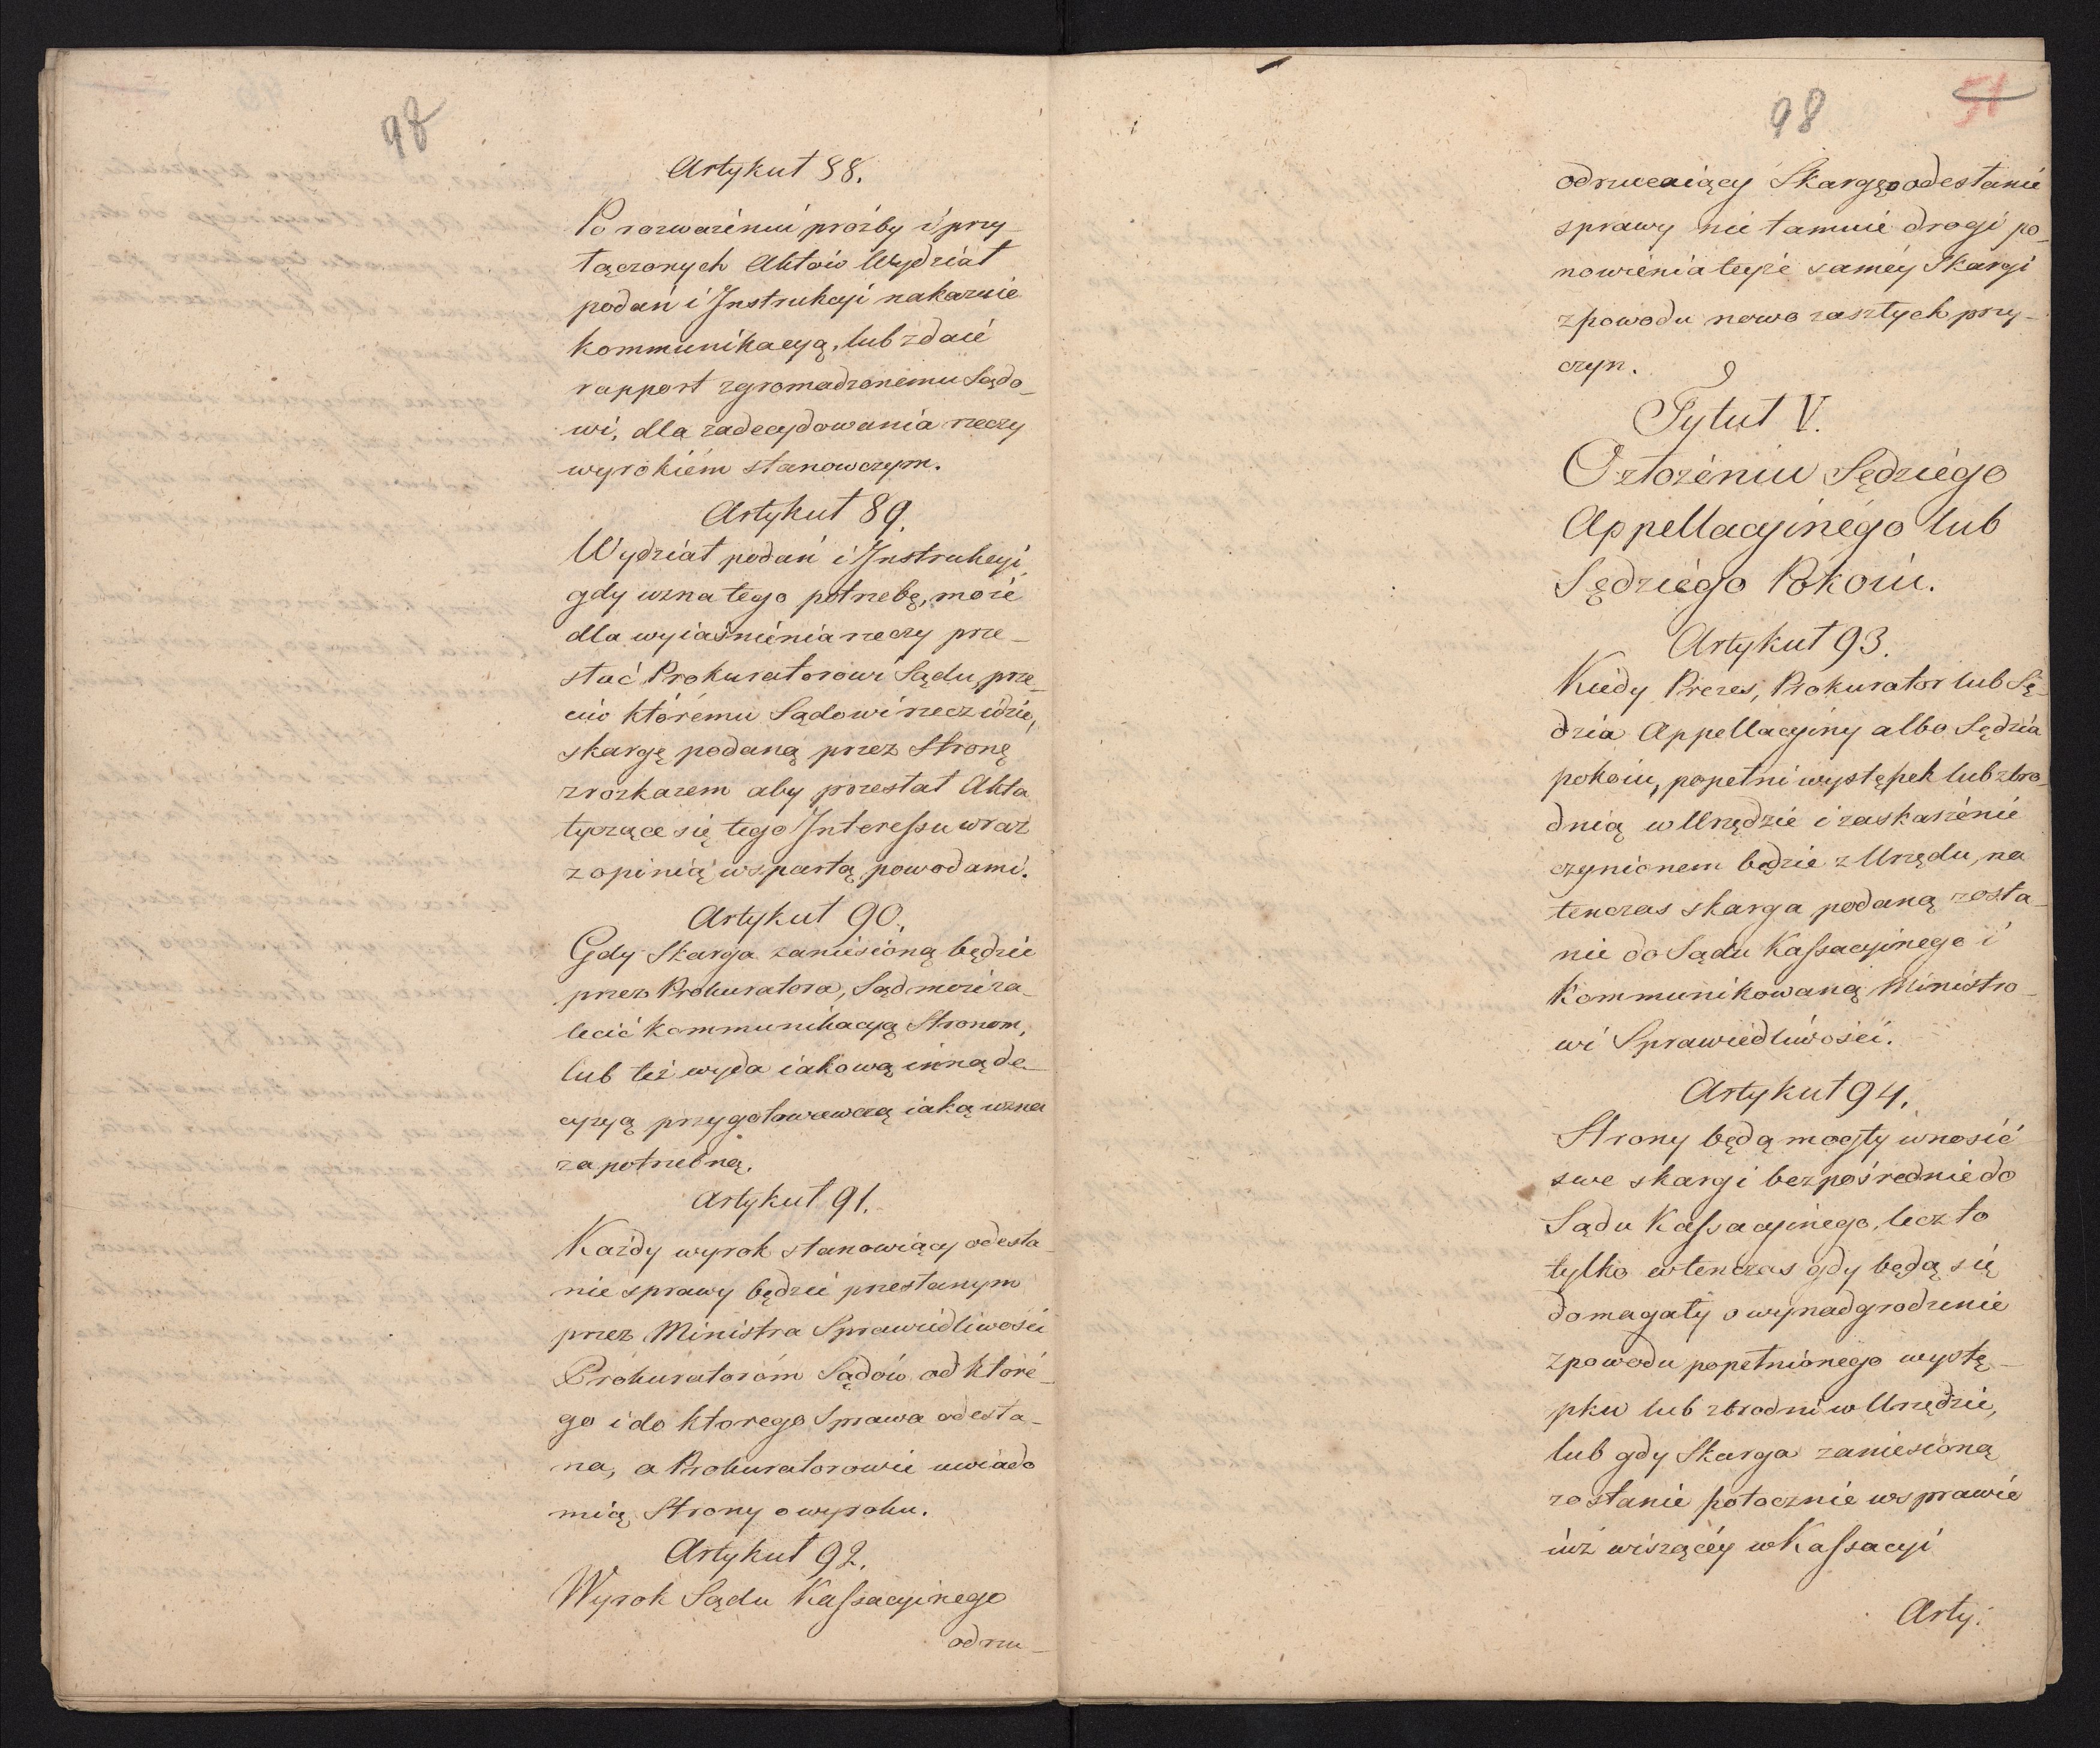 98
Artykuł 88.
Po rozważeniu prożby i przy-
łączonych Aktów Wydział
podań i Instrukcyi nakazuie
kommunikacyą, lub zdaie
rapport zgromadzonemu Sądo-
wi, dla zadecydowania rzeczy
wyrokiem stanowczym.
Artykuł 89.
Wydział podań i Instrukcyi
gdy uzna tego potrzebę, może
dla wyiaśnienia rzeczy prze-
słać Prokuratorowi Sądu, prze-
ciw któremu Sądowi rzecz idzie,
skargę podaną przez Stronę
z rozkazem aby przesłał Akta
tyczące się tego Interessu wraz
z opinią wspartą powodami.
Artykuł 90.
Gdy Skarga zaniesioną będzie
przez Prokuratora, Sąd może za-
lecić kommunikacyą Stronom,
lub też wyda iakową inną de-
cyzyą przygotowawczą iaką uzna
za potrzebną.
Artykuł 91.
Każdy wyrok stanowiący odesła-
nie sprawy będzie przesłanym
przez Ministra Sprawiedliwości
Prokuratorom Sądów od które-
go i do ktorego Sprawa odesła-
na, a Prokuratorowie uwiado
mią Strony o wyroku.
Artykuł 92.
Wyrok Sądu Kassacyinego
odrzu-
98
51
odrzucaiący Skargę o odesłanie
sprawy nie tamuie drogi po-
nowienia teyże saméy Skargi
z powodu nowo zaszłych przy-
czyn.
Tytuł V.
O złożeniu Sędziego
Appellacyinego lub
Sędziego Pokoiu.
Artykuł 93.
Kiedy Prezes, Prokurator lub Sę-
dzia Appellacyiny albo Sędzia
pokoiu, popełni występek lub zbro-
dnią w Urzędzie i zaskarżenie
czynionem będzie z Urzędu, na
tenczas skarga podaną zosta-
nie do Sądu Kassacyinego i
kommunikowaną Ministro-
wi Sprawiedliwości.
Artykuł 94.
Strony będą mogły wnosić
swe skargi bezpośrednie do
Sądu Kassacyinego, lecz to
tylko wtenczas gdy będą się
domagały o wynadgrodzenie
z powodu popełnionego wystę-
pku lub zbrodni w Urzędzie,
lub gdy Skarga zaniesioną
zostanie potocznie w sprawie
iuż wiszącéy w Kassacyi
Arty: